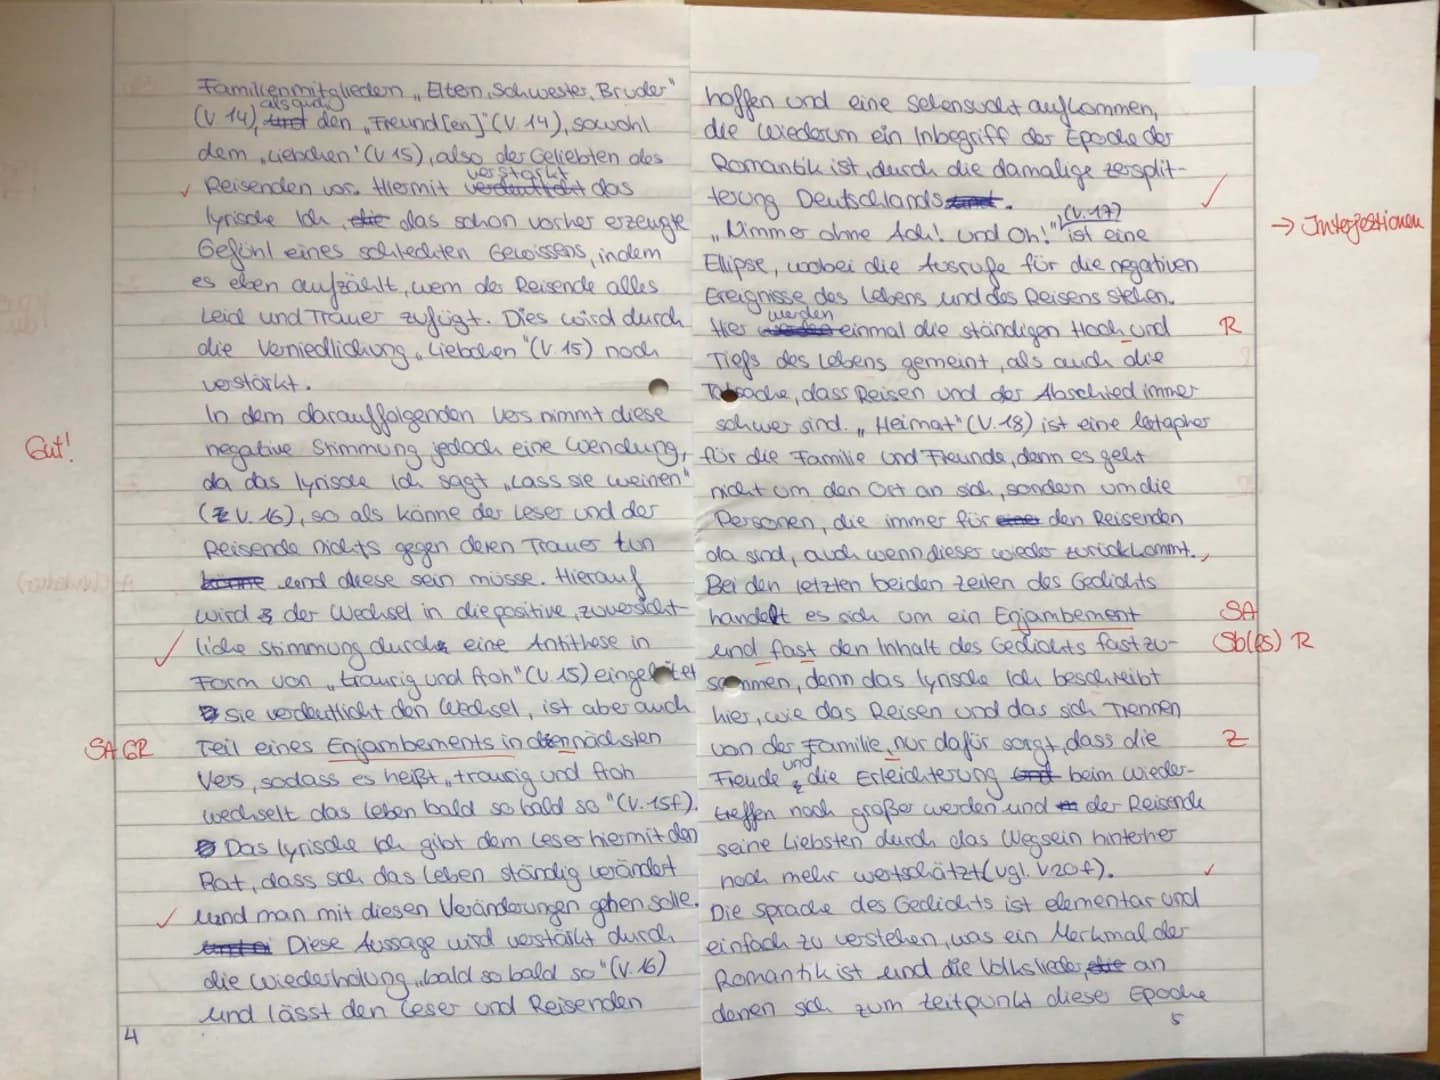 Familienmitgliedern „Eltern, Schwester, Bruder"
als auch
(V 14), und den „Freund[en]" (V. 14), sowohl
dem „Liebchen' (V 15), also der Geliebten des
verstärkt
Reisenden vor. Hiermit verdeutlicht das
lyrische Ich, die das schon vorher erzeugte
Gefühl eines schlechten Gewissens, indem
es eben aufzählt, wem der Reisende alles
Leid und Trauer zufügt. Dies wird durch
die Verniedlichung „Liebchen" (V. 15) noch
verstärkt.
In dem darauffolgenden Vers nimmt diese
Gut!
negative Stimmung jedoch eine Wendung,
da das lyrische Ich sagt „Lass sie weinen"
(Z V. 16), so als könne der Leser und der
Reisende nichts gegen deren Trauer tun
könne und diese sein müsse. Hierauf
wird der Wechsel in die positive, zuversicht-
liche Stimmung durch eine Antithese in
Form von „traurig und froh" (V. 15) eingeleitet
Sie verdeutlicht den Wechsel, ist aber auch
SA GR
Teil eines Enjambements in den nächsten
Vers, sodass es heißt „traurig und froh
wechselt das Leben bald so bald so" (V. 15f).
Das lyrische Ich gibt dem Leser hiermit den
Rat, dass sich das Leben ständig verändert
und man mit diesen Veränderungen gehen solle.
Diese Aussage wird verstärkt durch
die Wiederholung „bald so bald so" (V. 16)
und lässt den Leser und Reisenden
4
hoffen und eine Sehnsucht aufkommen,
die wiederum ein Inbegriff der Epoche der
Romantik ist, durch die damalige Zersplit-
terung Deutschlands und.
(V. 17)
→ Interjektionen
„Nimmer ohne Ach! und Oh!", ist eine
Ellipse, wobei die Ausrufe für die negativen
Ereignisse des Lebens und des Reisens stehen.
werden
Hier werden einmal die ständigen Hoch und
R
Tiefs des Lebens gemeint, als auch die
Tatsache, dass Reisen und der Abschied immer
schwer sind. „Heimat" (V. 18) ist eine Metapher
für die Familie und Freunde, denn es geht
nicht um den Ort an sich, sondern um die
Personen, die immer für einen den Reisenden
da sind, auch wenn dieser wieder zurückkommt.
Bei den letzten beiden Zeilen des Gedichts
handelt es sich um ein Enjambement
SA
und fast den Inhalt des Gedichts fast zu-
Sb(es) R
sammen, denn das lyrische Ich beschreibt
hier, wie das Reisen und das sich Trennen
von der Familie, nur dafür sorgt, dass die
Z
und
Freude die Erleichterung und beim Wieder-
treffen noch größer werden und der Reisende
seine Liebsten durch das Wegsein hinterher
noch mehr wertschätzt (vgl. V20f).
Die Sprache des Gedichts ist elementar und
einfach zu verstehen, was ein Merkmal der
Romantik ist und die Volkslieder, die an
denen sich zum Zeitpunkt dieser Epoche
5